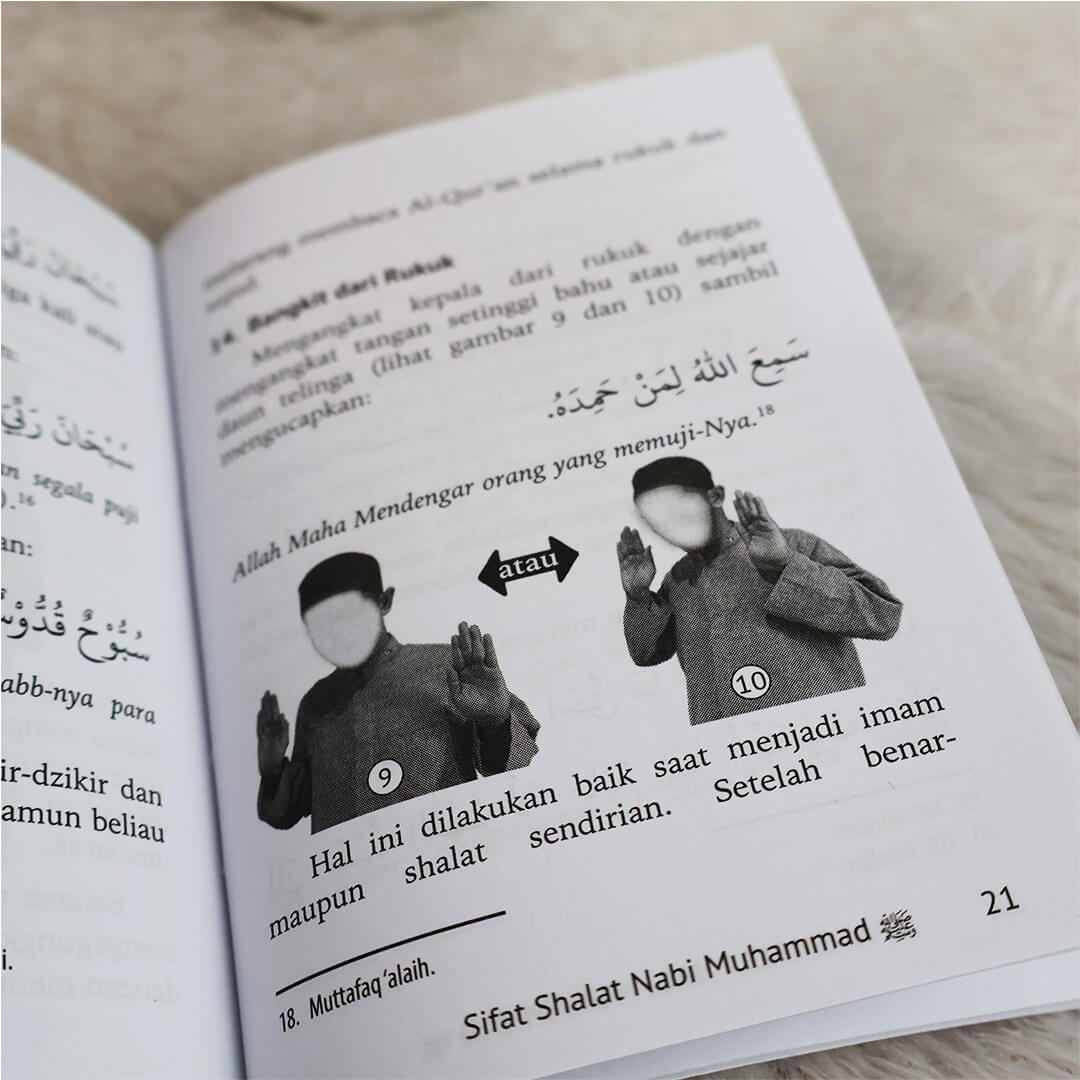 سُبْحَانَ رَبِّيَ
iga kali atau
n:
سُبْحَانَ رَبِّيَ
an segala puji
).16
an:
سُبُّوْحٌ قُدُّوْسٌ
abb-nya para
ir-dzikir dan
amun beliau
i.
membaca Al-Qur'an selama rukuk dan
sujud.
14. Bangkit dari Rukuk
Mengangkat kepala dari rukuk dengan
mengangkat tangan setinggi bahu atau sejajar
daun telinga (lihat gambar 9 dan 10) sambil
mengucapkan:
سَمِعَ اللهُ لِمَنْ حَمِدَهُ.
Allah Maha Mendengar orang yang memuji-Nya.18
atau
9
10
Hal ini dilakukan baik saat menjadi imam
maupun shalat sendirian. Setelah benar-
18. Muttafaq 'alaih.
Sifat Shalat Nabi Muhammad ﷺ 21